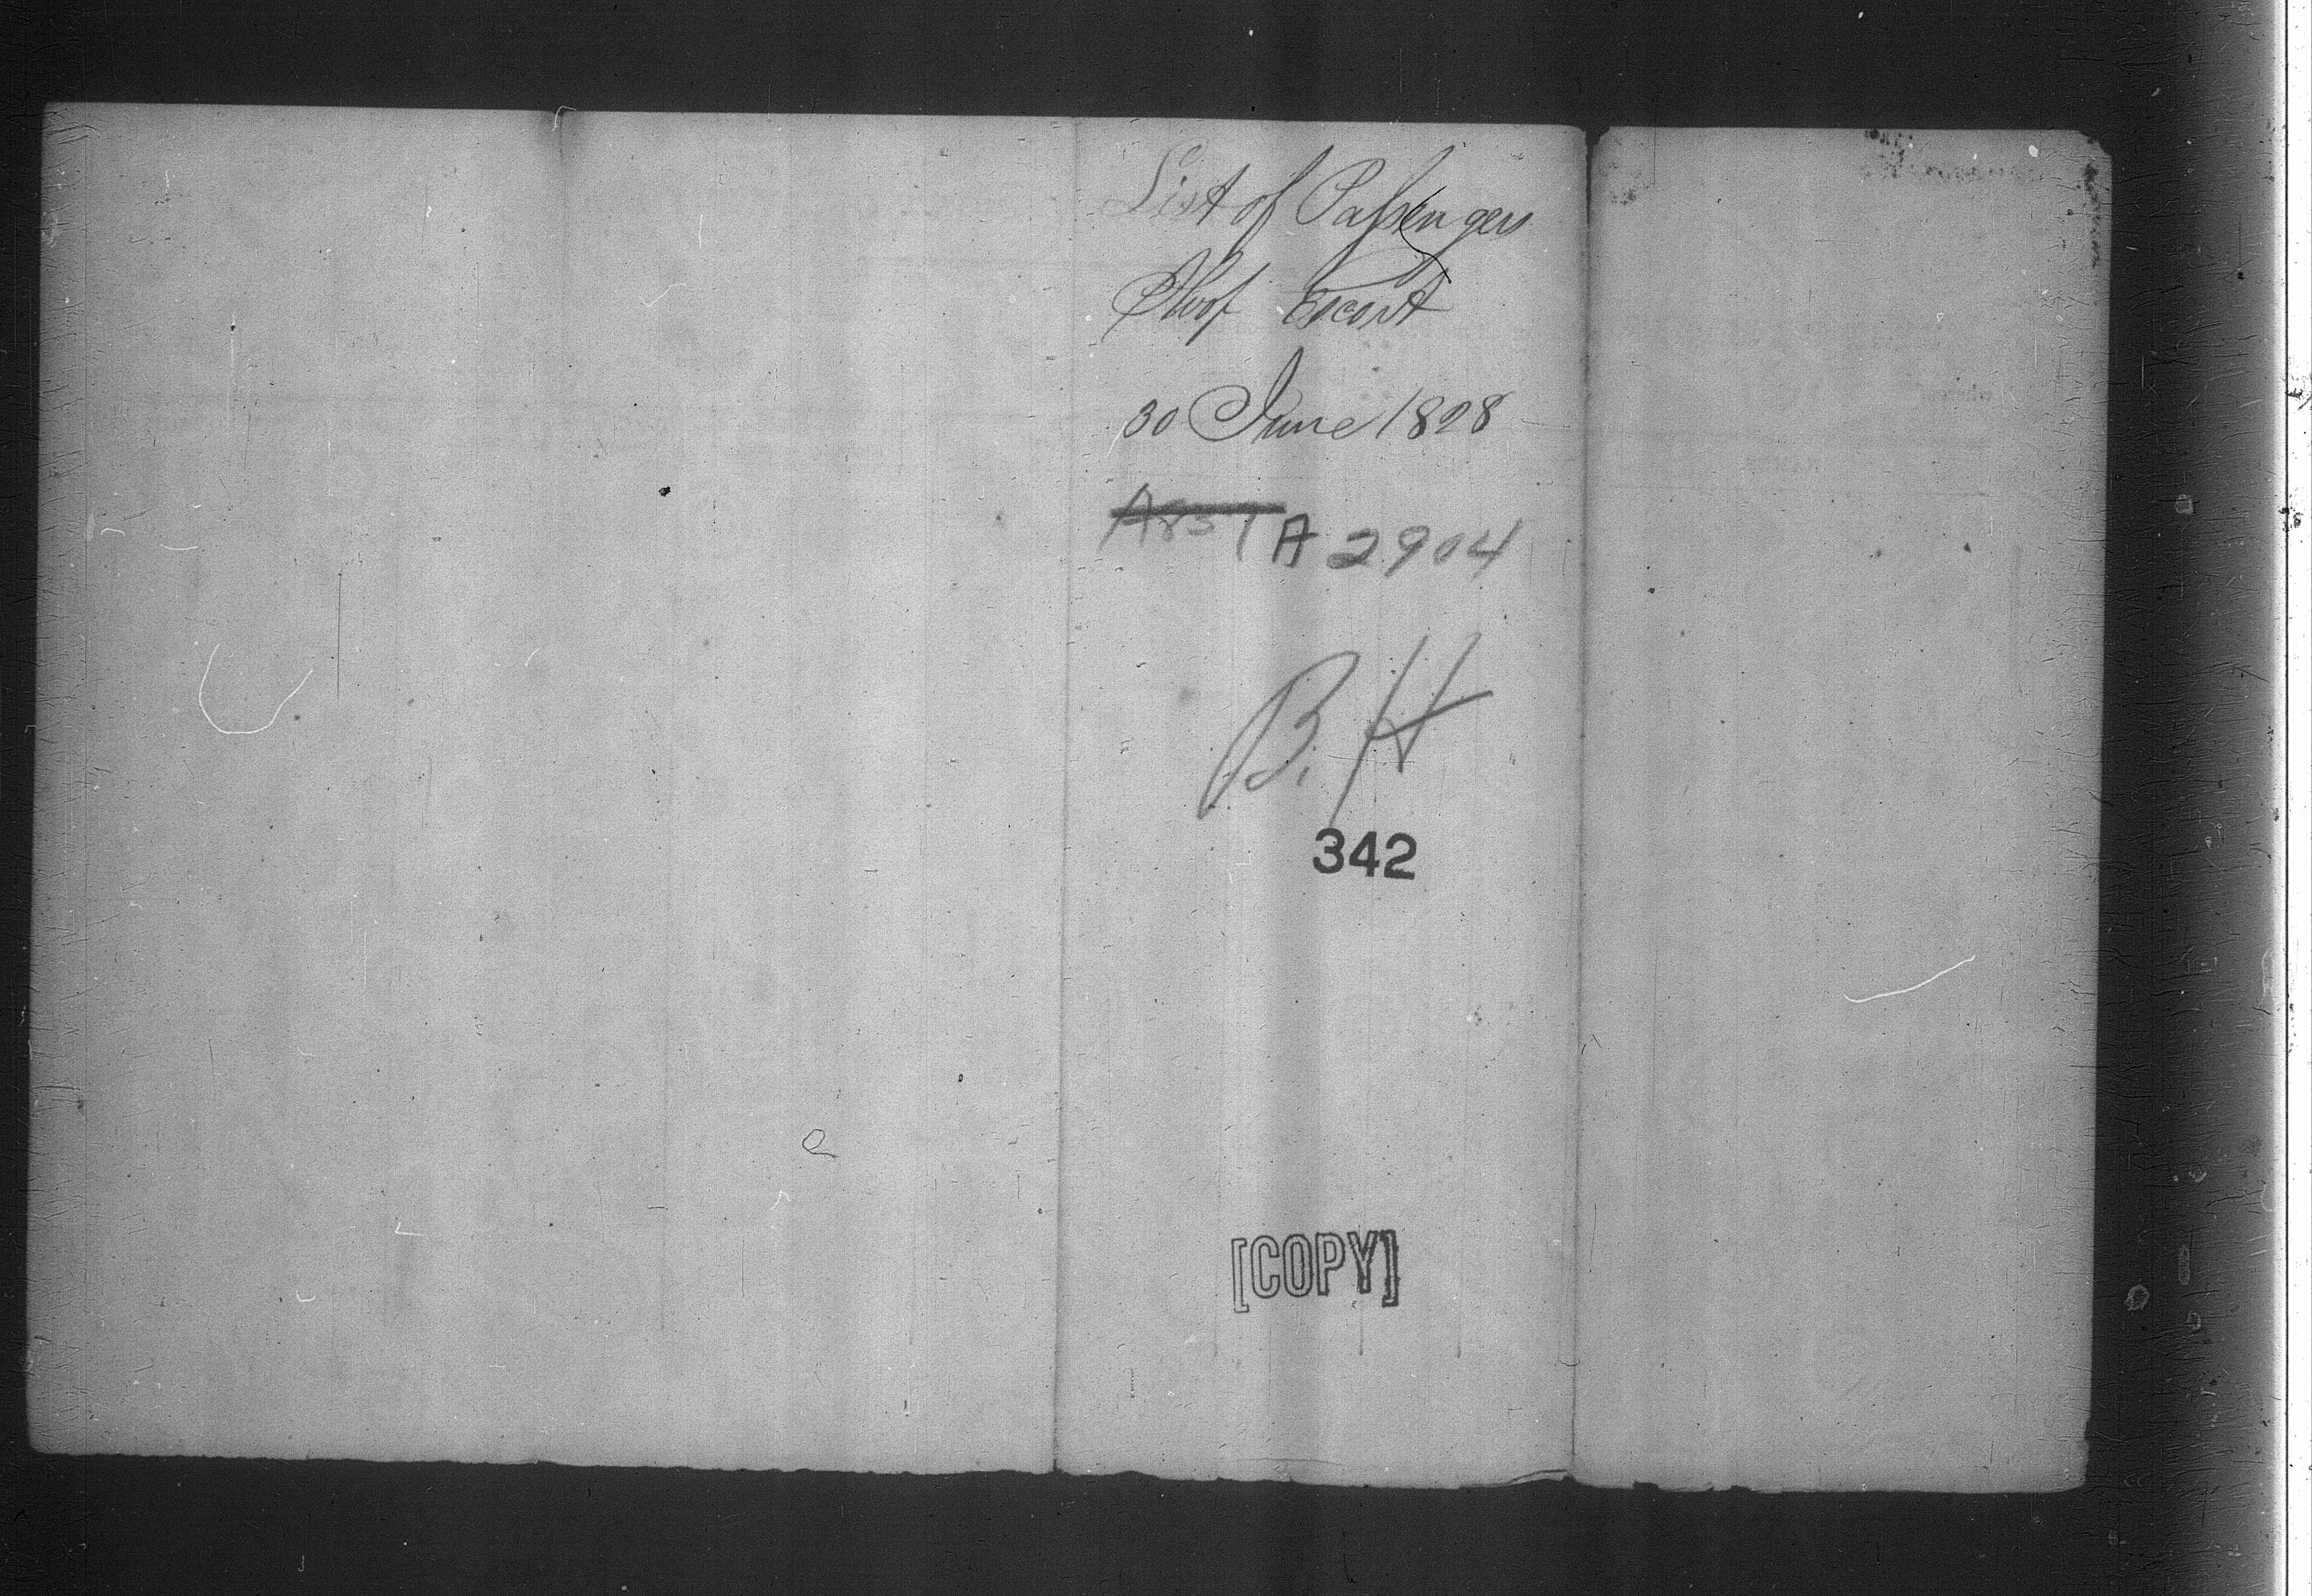 List of Passengers
Sloop Escort
30 June 1828
A 2904
B. H
342
[COPY]